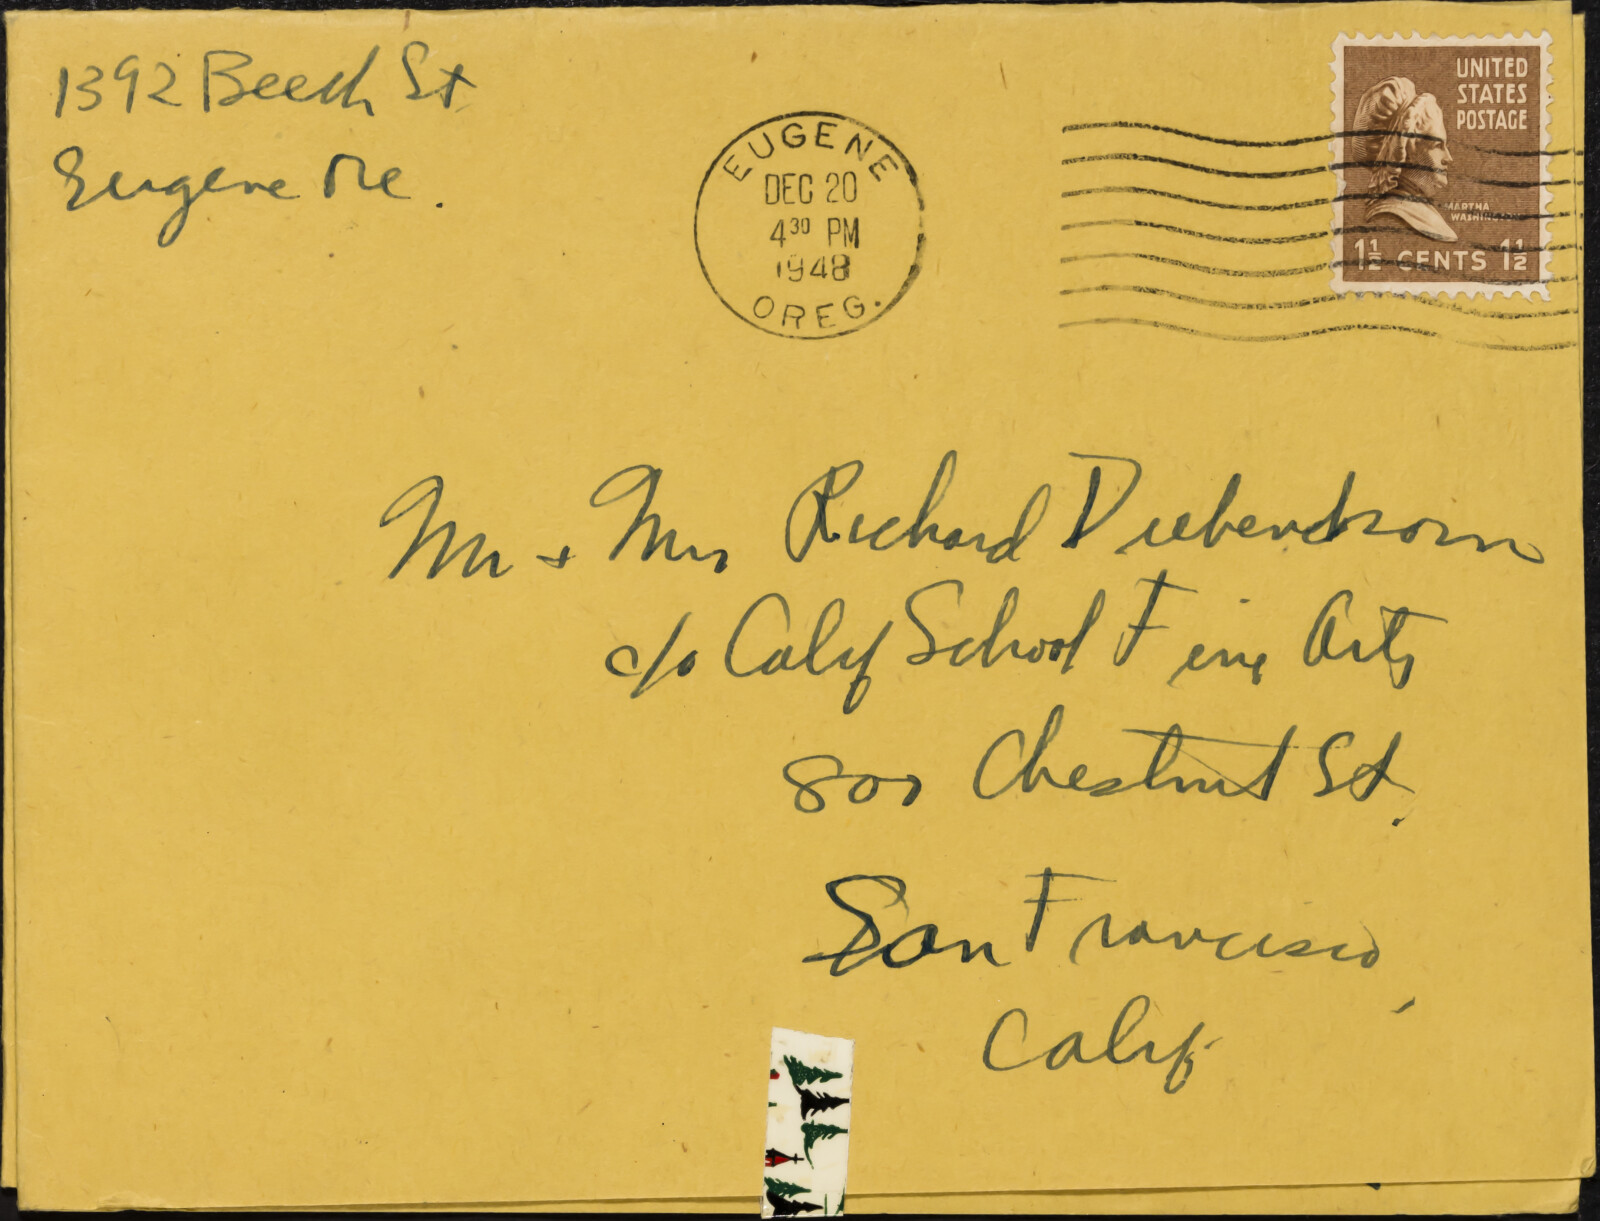 1392 Beech St
Eugene Ore.
EUGENE
DEC 20
4 30 PM
1948
OREG.
UNITED
STATES
POSTAGE
MARTHA
WASHINGTON
1½ CENTS 1½
Mr + Mrs Richard Diebenkorn
c/o Calif School Fine Arts
800 Chestnut St.
San Francisco,
Calif.